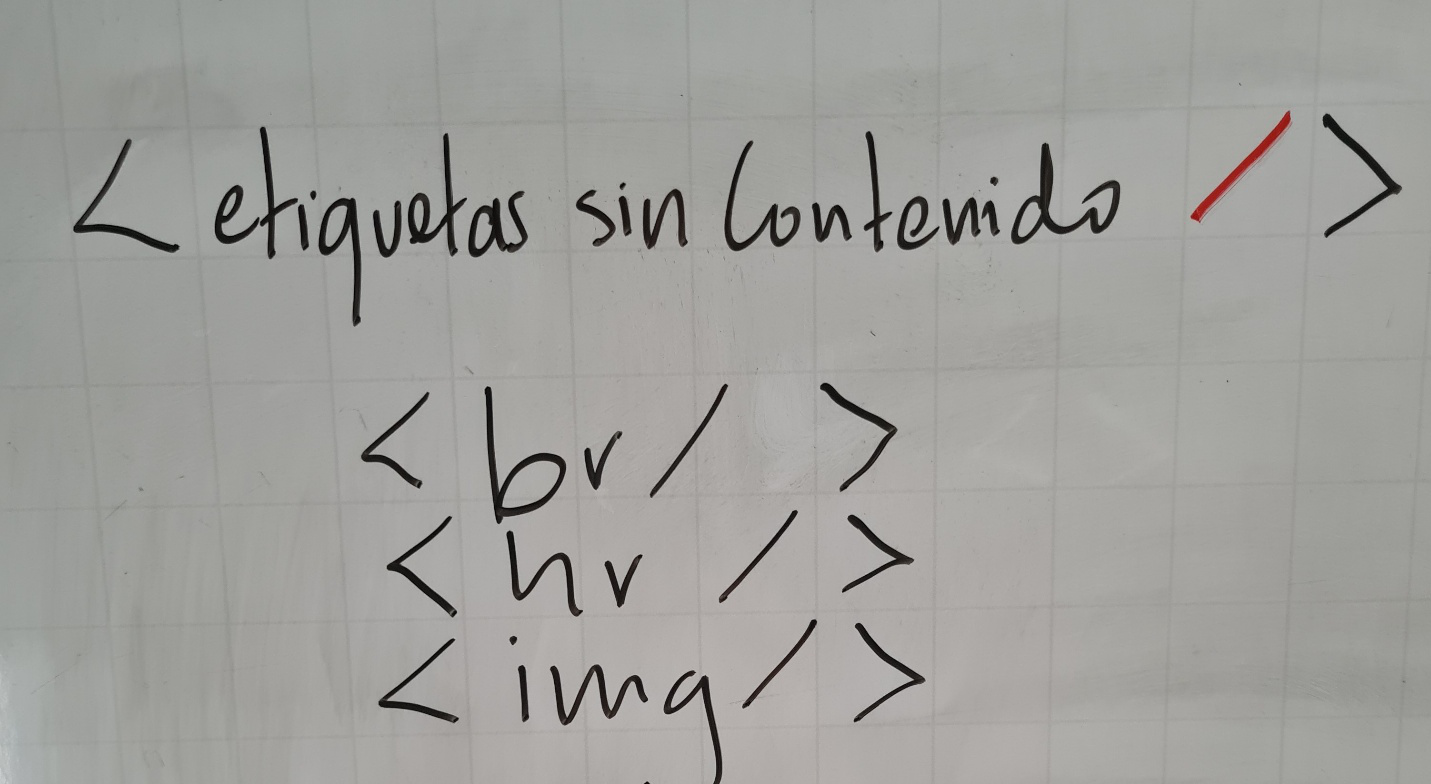 < etiquetas sin Contenido / >
< br / >
< hr / >
< img / >